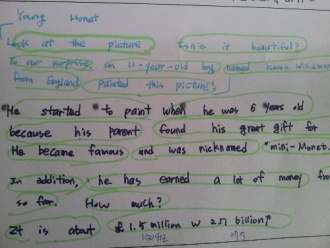 Young Monet
Look at the picture Isn't it beautiful?
To our surprise an 11-year-old boy named Kieron Williamson
from England painted this picture.
He started to paint when he was 6 years old
because his parent found his great gift for
He became famous and was nicknamed "mini-Monet.
In addition, he has earned a lot of money from
so far. How much?
It is about £1.5 million ₩ 2.7 billion!